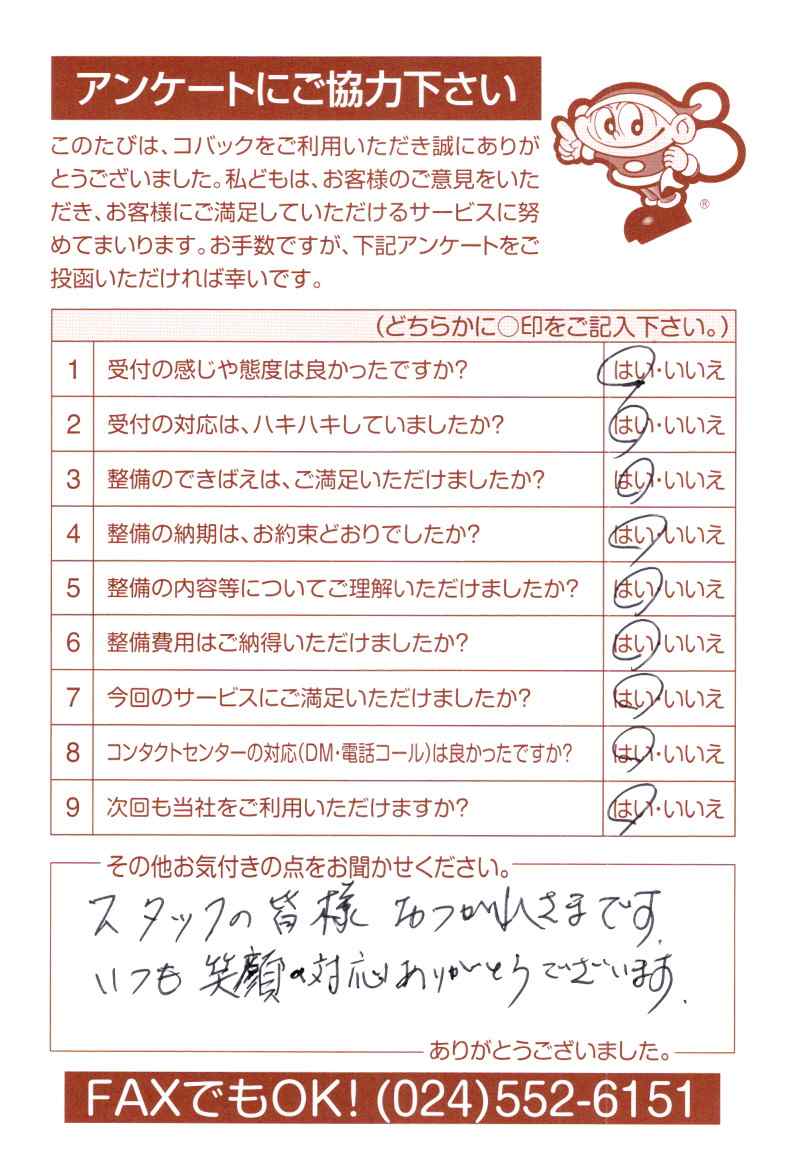 アンケートにご協力下さい
このたびは、コバックをご利用いただき誠にありが
とうございました。私どもは、お客様のご意見をいた
だき、お客様にご満足していただけるサービスに努
めてまいります。お手数ですが、下記アンケートをご
投函いただければ幸いです。
®
(どちらかに○印をご記入下さい。)
1 受付の感じや態度は良かったですか? はい・いいえ
2 受付の対応は、ハキハキしていましたか? はい・いいえ
3 整備のできばえは、ご満足いただけましたか? はい・いいえ
4 整備の納期は、お約束どおりでしたか? はい・いいえ
5 整備の内容等についてご理解いただけましたか? はい・いいえ
6 整備費用はご納得いただけましたか? はい・いいえ
7 今回のサービスにご満足いただけましたか? はい・いいえ
8 コンタクトセンターの対応(DM・電話コール)は良かったですか? はい・いいえ
9 次回も当社をご利用いただけますか? はい・いいえ
その他お気付きの点をお聞かせください。
スタッフの皆様 おつかれさまです。
いつも笑顔の対応ありがとうございます。
ありがとうございました。
FAXでもOK! (024)552-6151